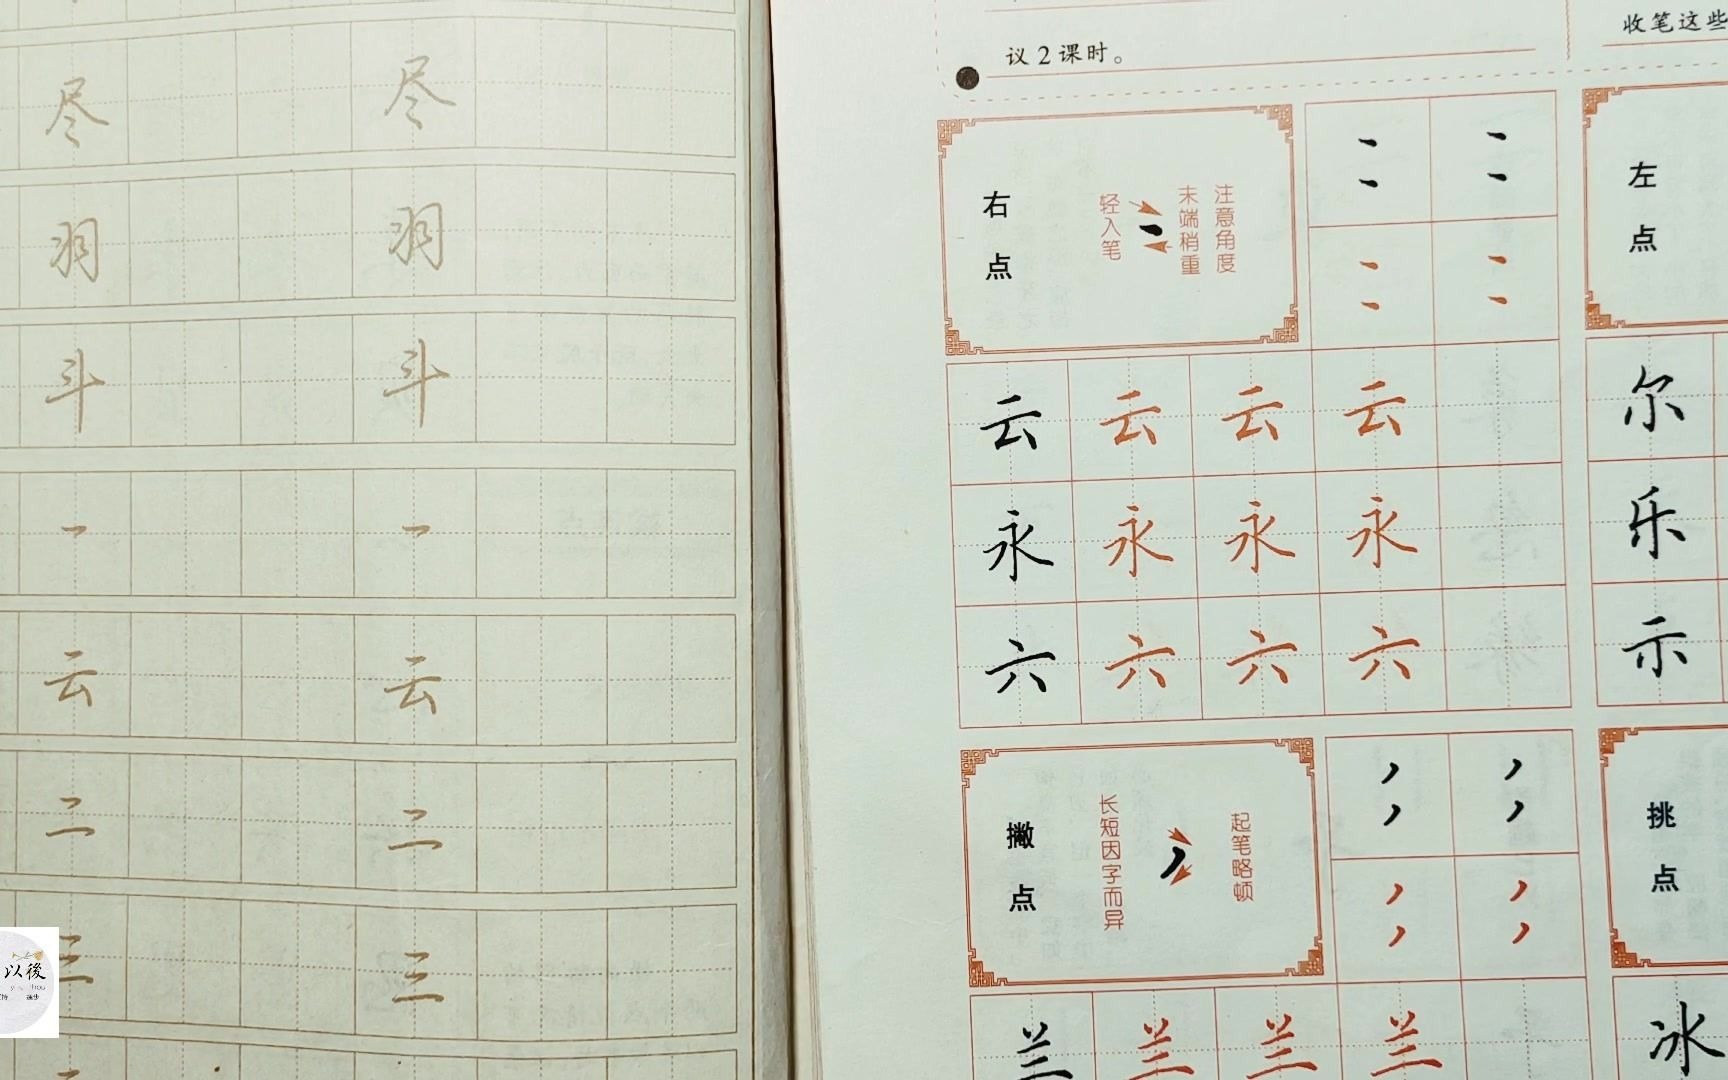 尽 尽
羽 羽
斗 斗
一 一
云 云
二 二
三 三
以後
议2课时。
收笔这些
右点
轻入笔
末端稍重
注意角度
左点
云 云 云 云
永 永 永 永
六 六 六 六
尔
乐
示
撇点
长短因字而异
起笔略顿
挑点
兰 兰 兰 兰
冰